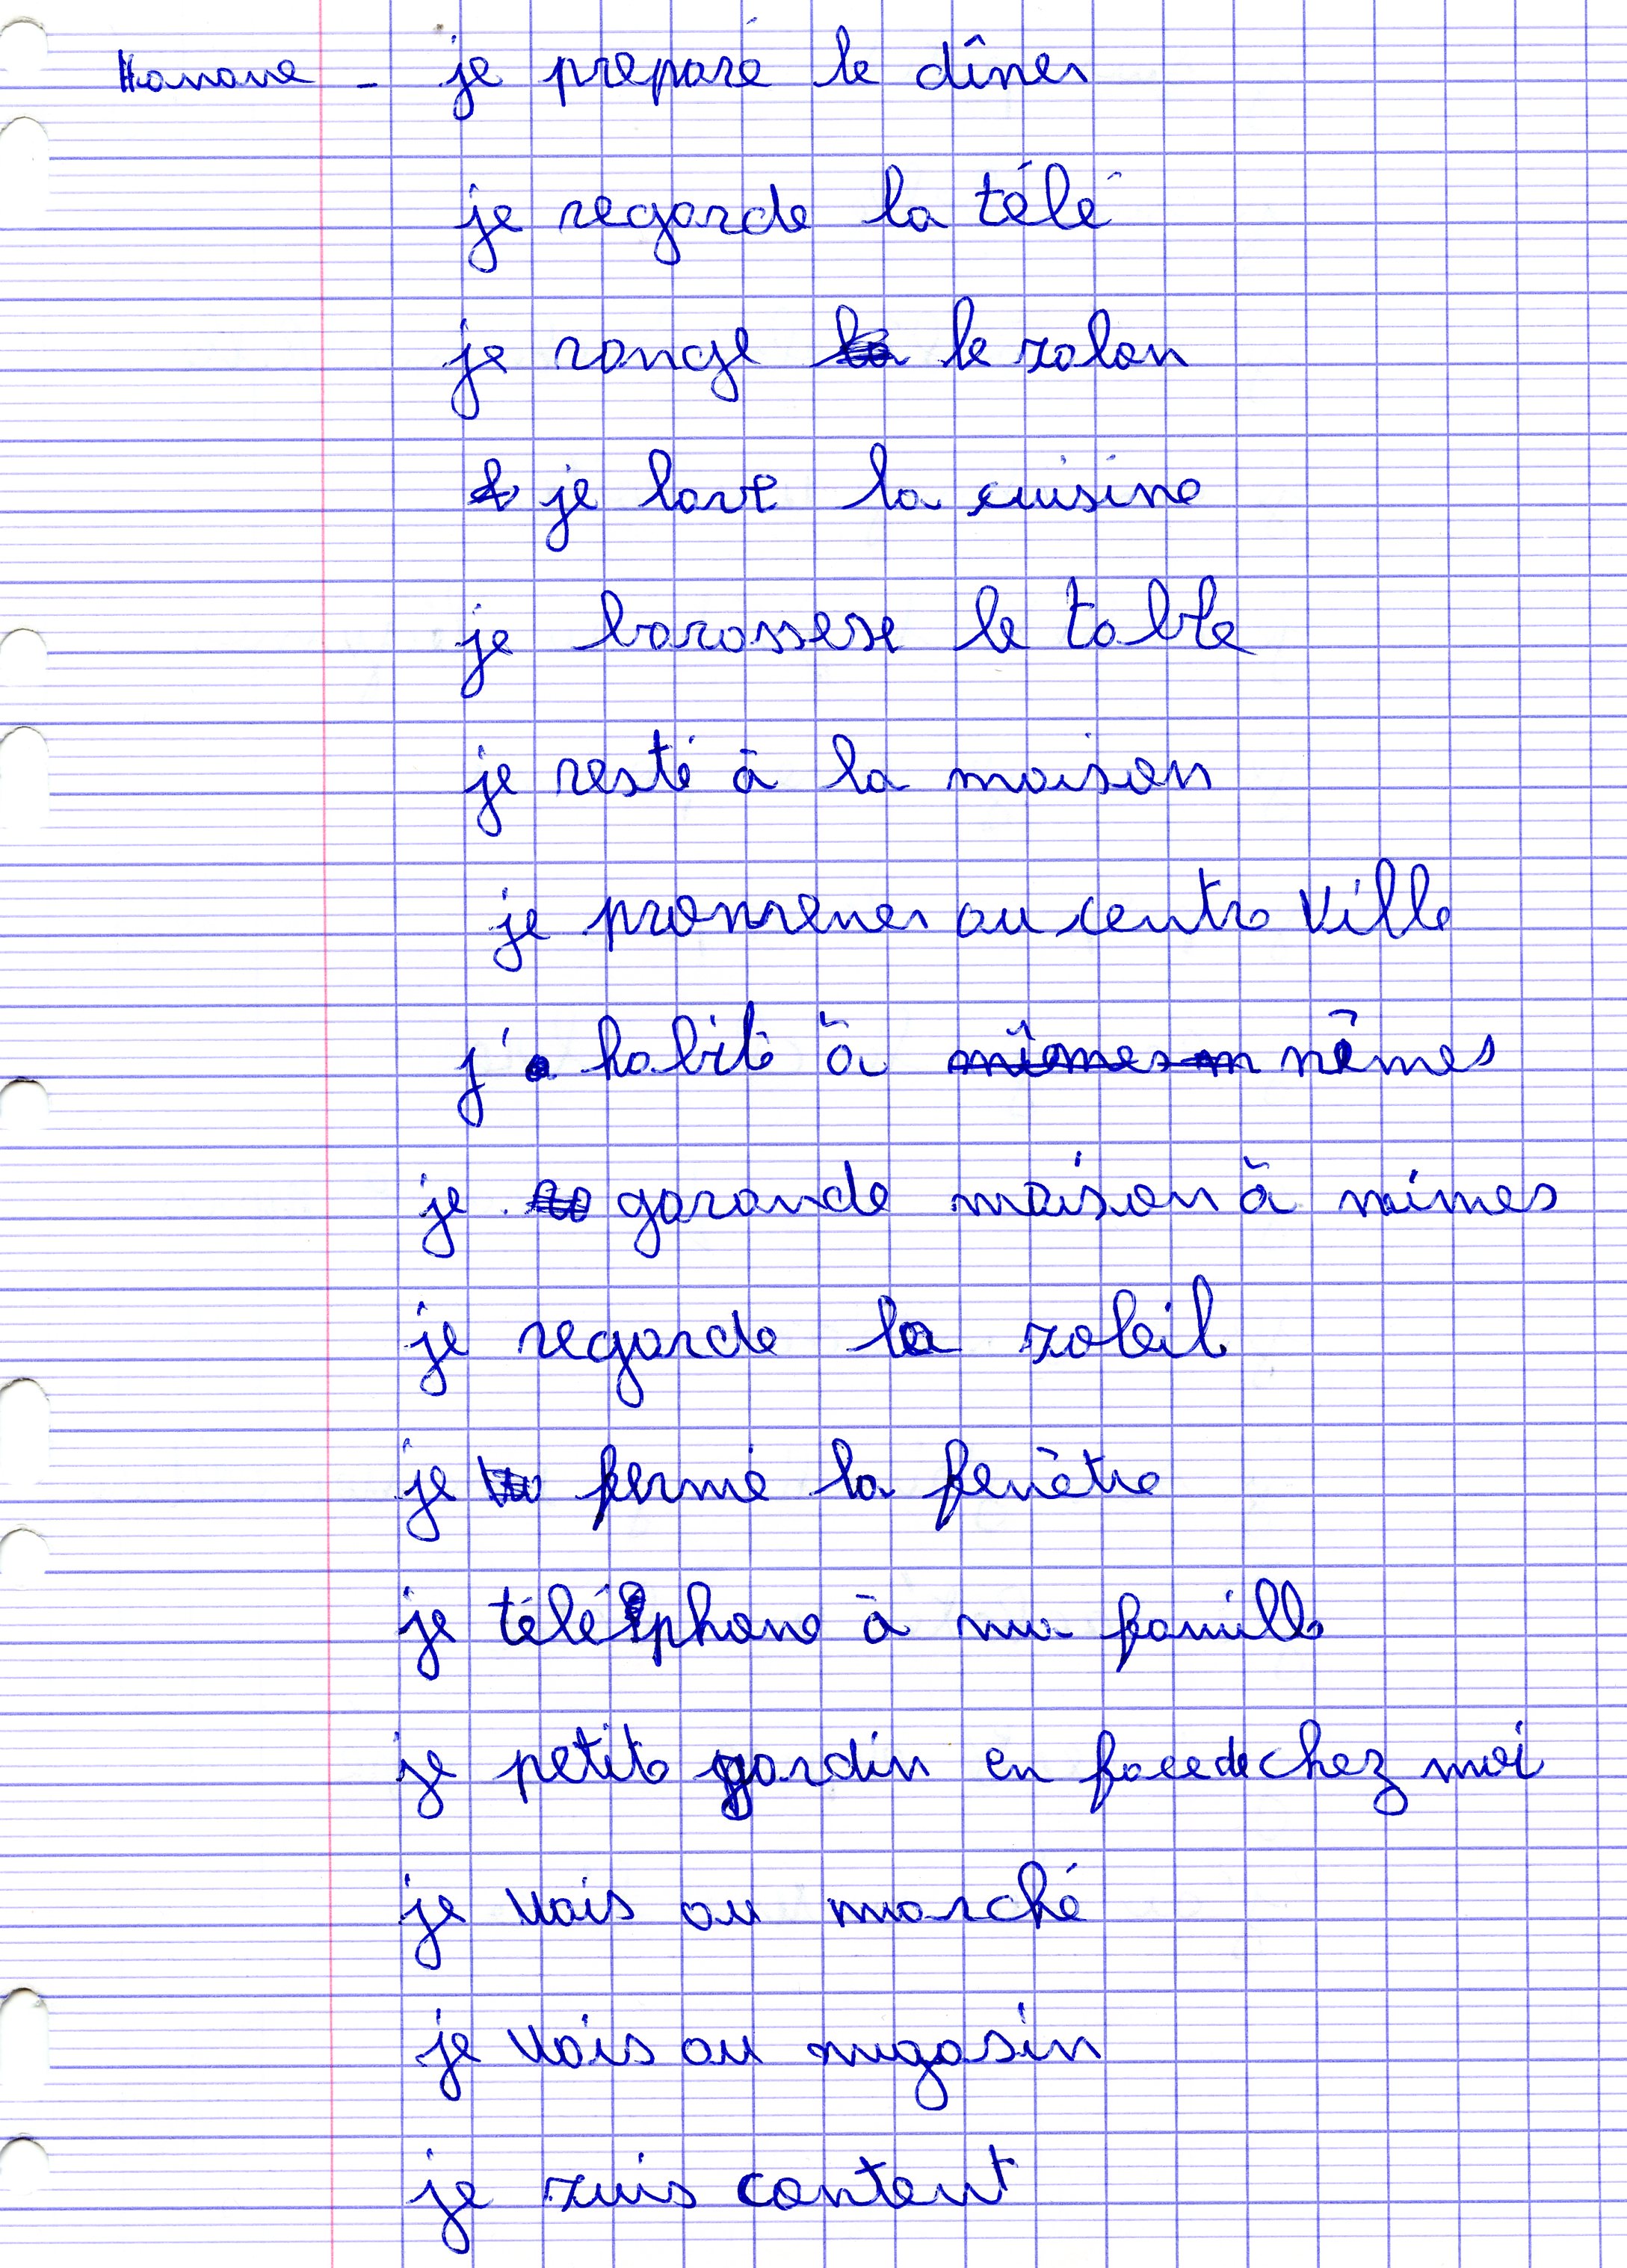 Hanane - je preparé le dîner
je regarde la télé
je range le salon
je lave la cuisine
je barassese le table
je resté à la maison
je promener au centre ville
j'a habité à nîmes
je garande maison à nimes
je regarde la soleil
je fermé la fenètre
je téléphone à ma famille
je petite gardin en face de chez moi
je vais au marché
je vais au magasin
je suis content